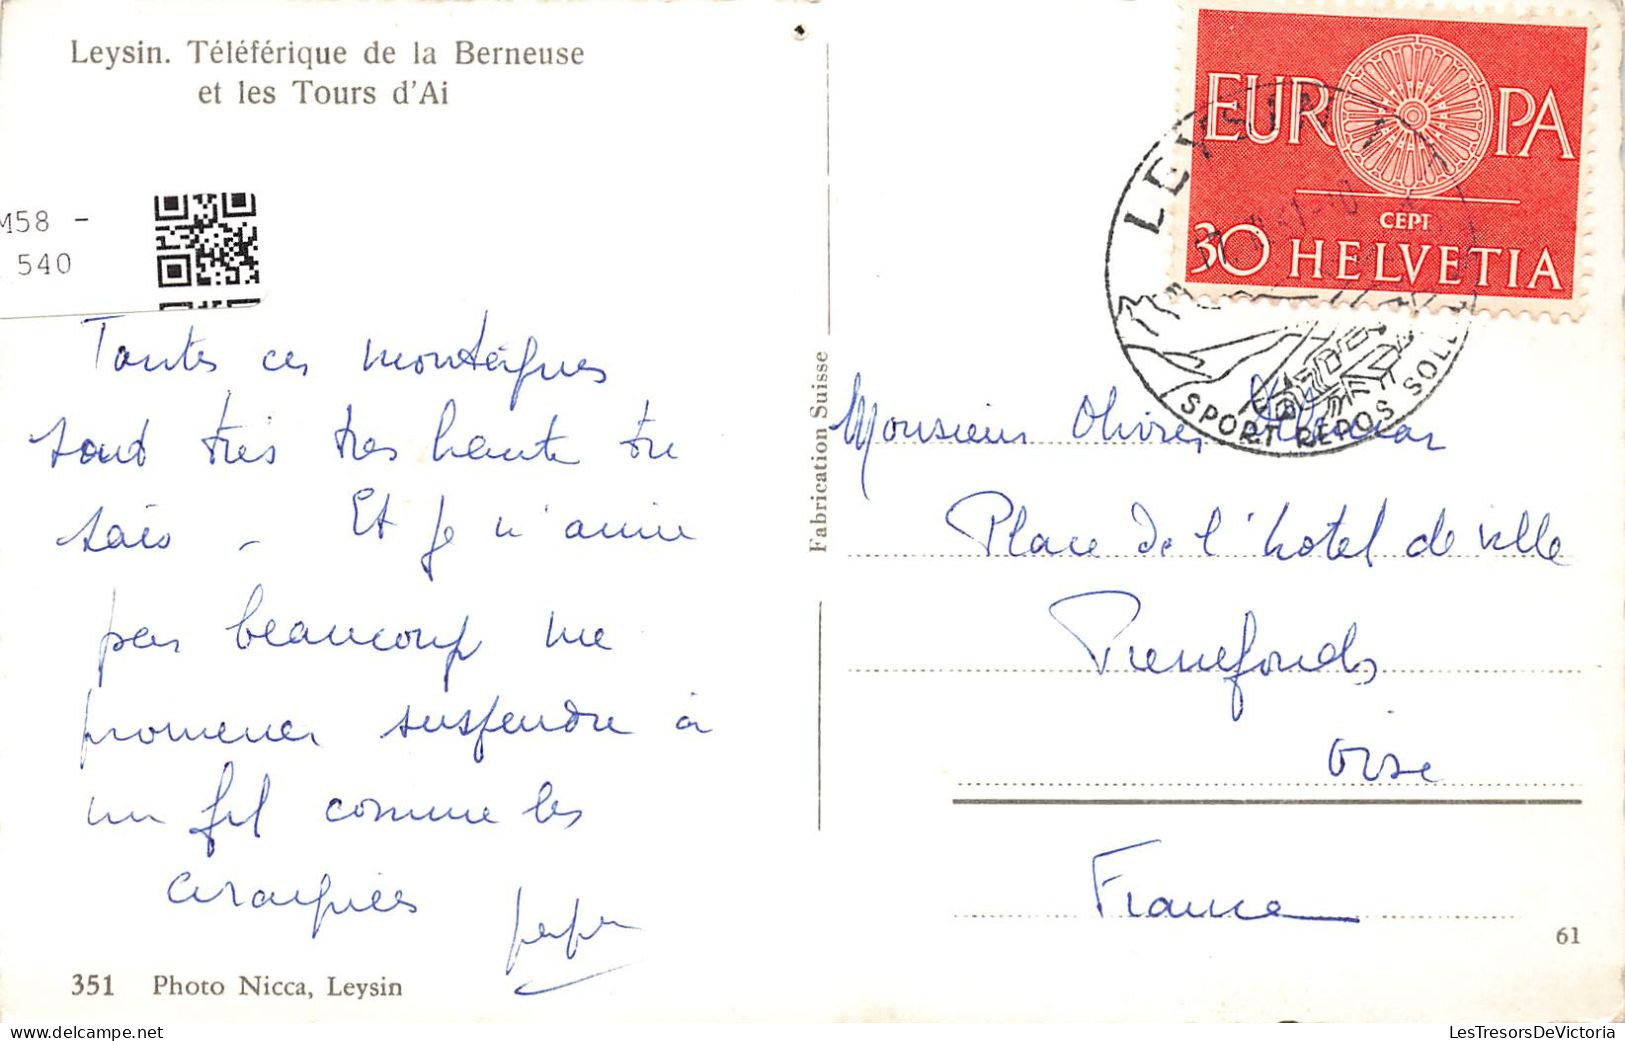 Leysin. Téléférique de la Berneuse
et les Tours d'Ai
M58 -
540
Toutes ces montagnes
sont très très haute tu
sais - Et je n'aime
pas beaucoup me
promener suspendre à
un fil comme les
araignées
papa
351 Photo Nicca, Leysin
Fabrication Suisse
EUROPA
CEPT
30 HELVETIA
LEYSIN
SPORT REPOS SOLEIL
Monsieur Olivier
Place de l'hotel de ville
Pierrefonds
Oise
France
61
LesTresorsDeVictoria
www.delcampe.net